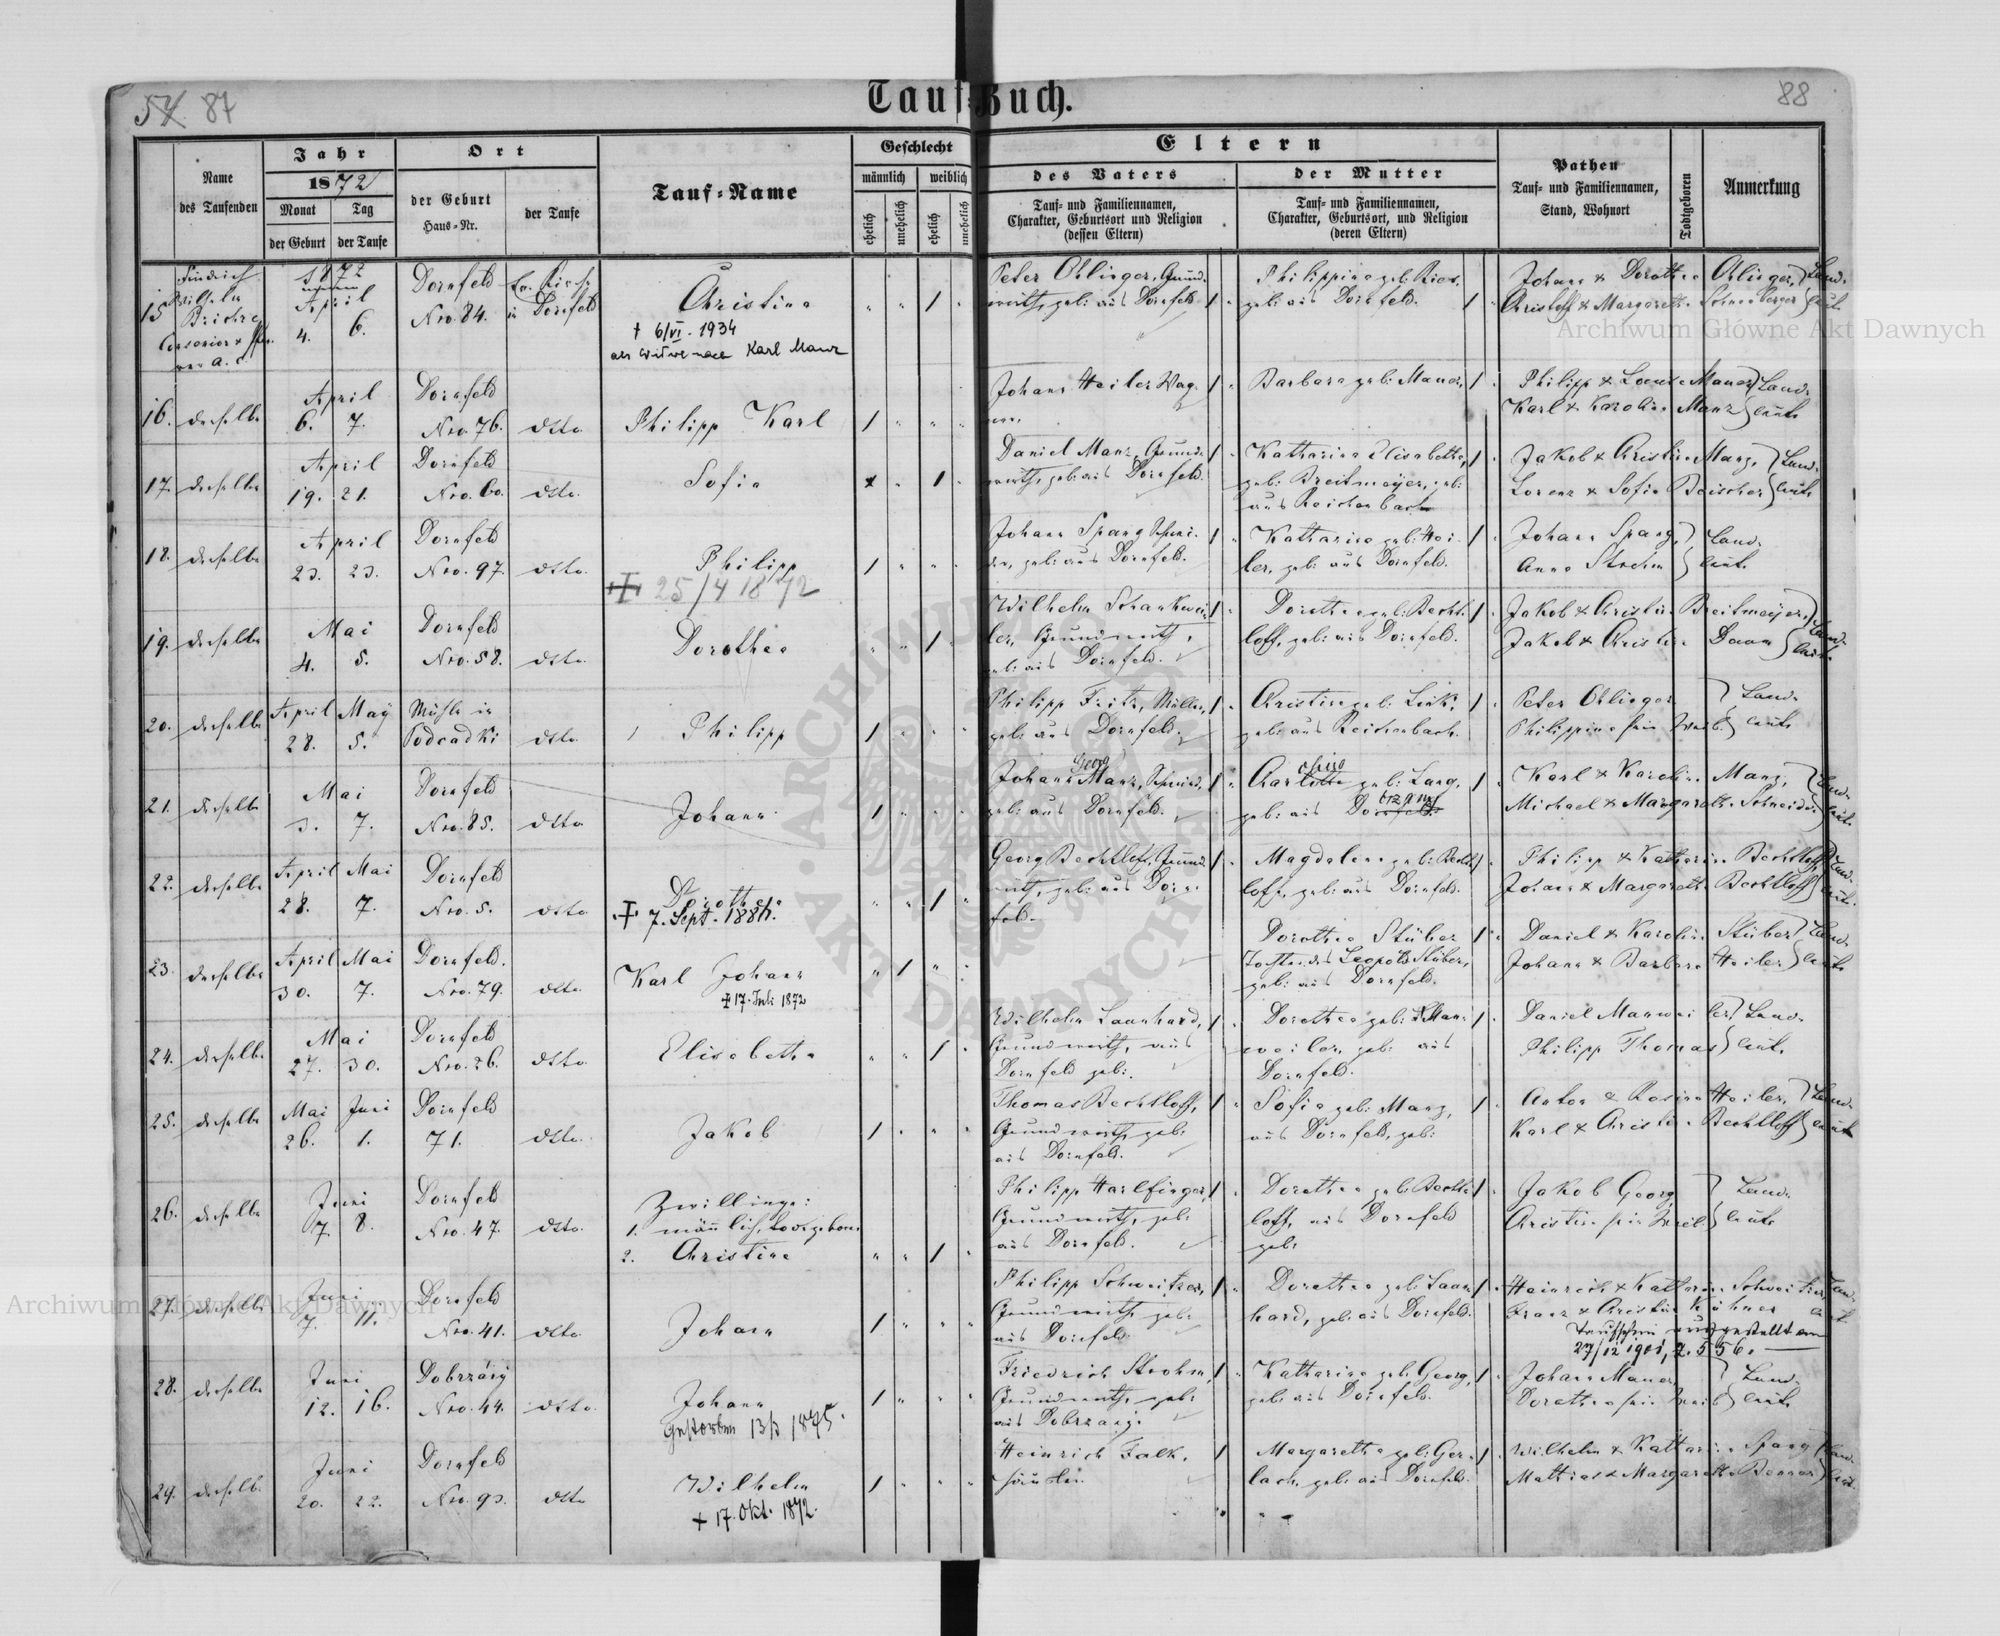 54. 87
Tauf-Buch.
88
Name des Taufenden
Jahr
1872
Monat
Tag
der Geburt
der Taufe
Ort
der Geburt
Haus-Nr.
der Taufe
Tauf-Name
Geschlecht
männlich
weiblich
ehelich
unehelich
ehelich
unehelich
Eltern
des Vaters
Tauf- und Familiennamen,
Charakter, Geburtsort und Religion
(dessen Eltern)
der Mutter
Tauf- und Familiennamen,
Charakter, Geburtsort, und Religion
(deren Eltern)
Pathen
Tauf- und Familiennamen,
Stand, Wohnort
Todtgeboren
Anmerkung
15
Friedrich
Wilhelm
1872
April
4. 6.
Dornfeld
Nro. 84.
in Dornfeld
Christina
† 6/VI. 1934
als Witwe nach Karl Manz
Peter Ohlinger, Grund-
wirth, geb: aus Dornfeld
Philippina geb:
geb: aus Dornfeld.
Johann & Dorothea Ohlinger
Christoff & Margareth Schneeberger
Land-
leute
16. derselbe
April
6. 7.
Dornfeld
Nro. 76.
dtto.
Philipp Karl
Johann Heiler, Wag-
ner,
Barbara geb: Mauer,
Philipp & Louise Mauer
Karl & Karolina Manz
Land-
leute
17. derselbe
April
19. 21.
Dornfeld
Nro. 60.
dtto.
Sofia
Daniel Manz, Grund-
wirth, geb: aus Dornfeld.
Katharina Elisabetha,
geb: Breitmeyer, geb:
aus Reichenbach
Jakob & Christina Manz,
Lorenz & Sofia Beischer
Land-
leute
18. derselbe
April
23. 23.
Dornfeld
Nro. 97.
dtto.
Philipp
† 25/4 1872
Johann Spang, Schnei-
der, geb: aus Dornfeld.
Katharina geb: Hei-
ler, geb: aus Dornfeld.
Johann Spang,
Anna Strohm
Land-
leute
19. derselbe
Mai
4. 5.
Dornfeld
Nro. 58.
dtto.
Dorothea
Wilhelm Schankwei-
ler, Grundwirth,
geb: aus Dornfeld.
Dorothea geb: Becht-
loff, geb: aus Dornfeld.
Jakob & Christina Breitmeyer,
Jakob & Christina Daum
Land-
leute
20. derselbe
April May
28. 5.
Mühle in
Podsadki
dtto.
Philipp
Philipp Fritz, Müller,
geb: aus Dornfeld.
Christina geb: Link,
geb: aus Reichenbach.
Peter Ohlinger
Philippina sein Weib.
Land-
leute
21. derselbe
Mai
3. 7.
Dornfeld
Nro. 85.
dtto.
Johann
Georg
Johann Manz, Schmied,
geb: aus Dornfeld.
Charlotte geb: Lang,
geb: aus Dornfeld.
Karl & Karolina Manz,
Michael & Margareth Schneider
Land-
leute
22. derselbe
April Mai
28. 7.
Dornfeld
Nro. 5.
dtto
Dorothea
† 7. Sept. 1884.
Georg Bechtloff, Grund-
wirth, geb: aus Dorn-
feld.
Magdalena geb: Becht-
loff, geb: aus Dornfeld.
Philipp & Katharina Bechtloff
Johann & Margareth Bechtloff
Land-
leute
23. derselbe
April Mai
30. 7.
Dornfeld.
Nro. 79.
dtto.
Karl Johann
† 17. Juli 1872
Dorothea Stüber
Tochter des Leopold Stüber,
geb: aus Dornfeld.
Daniel & Karolina Stüber
Johann & Barbara Heiler
Land-
leute
24. derselbe
Mai
27. 30.
Dornfeld
Nro. 26.
dtto.
Elisabetha
Wilhelm Laanhard,
Grundwirth, aus
Dornfeld geb:
Dorothea geb: Man-
weiler, geb: aus
Dornfeld.
Daniel Manweiler
Philipp Thomas
Land-
leute
25. derselbe
Mai Juni
26. 1.
Dornfeld
71.
dtto.
Jakob
Thomas Bechtloff,
Grundwirth, geb:
aus Dornfeld.
Sofia geb: Manz,
aus Dornfeld, geb:
Anton & Rosina Heiler,
Karl & Christina Bechtloff
Land-
leute
26. derselbe
Juni
7. 8.
Dornfeld
Nro. 47.
dtto.
Zwillinge:
1. männlich, todtgeboren
2. Christina
Philipp Harlfinger,
Grundwirth, geb:
aus Dornfeld.
Dorothea geb: Becht-
loff, aus Dornfeld
geb:
Jakob Georg
Christina sein Weib
Land-
leute
27. derselbe
Juni
7. 11.
Dornfeld
Nro. 41.
dtto.
Johann
Philipp Schweitzer,
Grundwirth geb:
aus Dornfeld.
Dorothea geb: Laan-
hard, geb: aus Dornfeld.
Heinrich & Katharina Schweitzer,
Franz & Christina Kühner
Taufschein ausgestellt am
27/12 1901, Z. 556.
28. derselbe
Juni
12. 16.
Dobrzany
Nro. 44.
dtto.
Johann
Gestorben 13/3 1875.
Friedrich Strohm,
Grundwirth, geb:
aus Dobrzany.
Katharina geb: Georg,
geb: aus Dornfeld.
Johann Mauer
Dorothea sein Weib
Land-
leute
29. derselbe
Juni
20. 22.
Dornfeld
Nro. 93.
dtto
Wilhelm
† 17. Okt. 1872.
Heinrich Falk,
Margaretha geb: Ger-
lach, geb: aus Dornfeld.
Wilhelm & Katharina Spang
Mathias & Margareth Benner
Land-
leute
Archiwum Główne Akt Dawnych
Archiwum Główne Akt Dawnych
ARCHIWUM GŁÓWNE AKT DAWNYCH